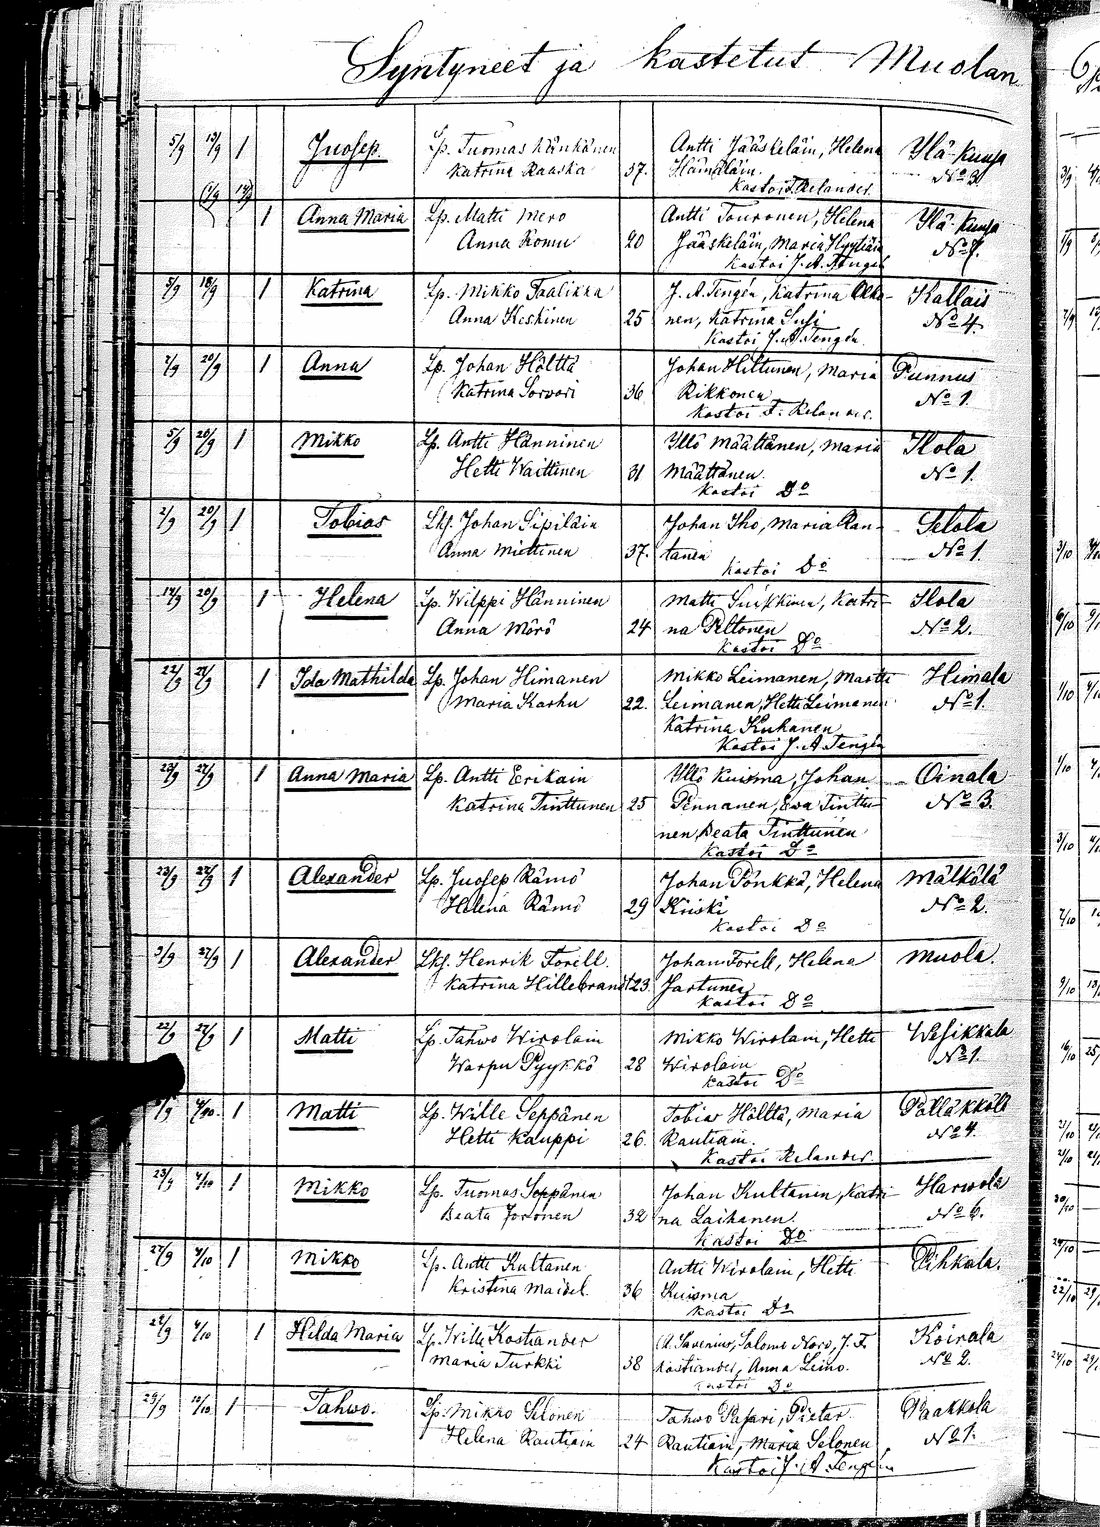 Syntyneet ja kastetut Muolan
5/9 13/9 1 Juosep. Lp. Tuomas Känkänen Antti Jääskeläin, Helena Ylä-Kuusa
Katrina Raaska 37. Hämäläin. No 3
Kastoi F. Relander.
1 Anna Maria Lp. Matti Mero Antti Touronen, Helena Ylä-Kuusa
Anna Romu 20 Jääskeläin, Maria Hyytiäin No 7.
Kastoi J. A. Tengén
5/9 18/9 1 Katrina Lp. Mikko Taalikka J. A. Tengén, Katrina Olko- Kallais
Anna Keskinen 25 nen, Katrina Susi No 4.
Kastoi J. A. Tengén.
7/9 20/9 1 Anna Lp. Johan Hölttä Johan Hiltunen, Maria Punnus
Katrina Sorvari 36 Rikkonen No 1.
Kastoi F. Relander.
5/9 20/9 1 Mikko Lp. Antti Hänninen Yllö Määttänen, Maria Ilola
Hetti Waittinen 31 Määttänen. No 1.
Kastoi Do
2/9 20/9 1 Tobias Lkj. Johan Sipiläin Johan Iho, Maria Ran- Ilola
Anna Miettinen 37. tanen No 1.
Kastoi Do
14/9 20/9 1 Helena Lp. Wilppi Hänninen Matti Suikkinen, Katri- Ilola
Anna Mörö 24 na Peltonen No 2.
Kastoi Do
22/9 27/9 1 Ida Mathilda Lp. Johan Himanen Mikko Leimanen, Martti Himala
Maria Karhu 22. Leimanen, Hetti Leimanen No 1.
Katrina Kuhanen
Kastoi J. A. Tengén
23/9 27/9 1 Anna Maria Lp. Antti Erikäin Yllö Kuisma, Johan Oinala
Katrina Tinttunen 25 Pennanen, Ewa Tinttu- No 3.
nen, Beata Tinttunen
Kastoi Do
23/9 27/9 1 Alexander Lp. Juosep Rämö Johan Pönkkä, Helena Mälkölä
Helena Rämö 29 Kiiski No 2.
Kastoi Do
3/9 27/9 1 Alexander Lkj. Henrik Forell. Johan Forell, Helena Muola.
Katrina Hillebrandt 23.
Kastoi Do
22/9 27/9 1 Matti Lp. Tahwo Wirolain Mikko Wirolain, Hetti Wesikkala
Warpu Pyykkö 28 Wirolain No 1.
Kastoi Do
4/10 1 Matti Lp. Wille Seppänen Tobias Hölttä, Maria Pälläkkälä
Hetti Kauppi 26. Rautiain. No 4.
Kastoi Relander.
23/9 4/10 1 Mikko Lp. Tuomas Seppänen Johan Kultanen, Katri- Harwola
Beata Joronen 32 na Laihanen. No 6.
Kastoi Do
27/9 4/10 1 Mikko Lp. Antti Kultanen Antti Wirolain, Hetti Pihkala.
Kristina Maidel. 36 Kuisma
Kastoi Do
28/9 4/10 1 Hilda Maria Lp. Wille Kostiander A. Savenius, Salome Noro, J. F. Koirala
Maria Turkki 38 Kostiander, Anna Leino. No 2.
Kastoi Do
29/9 10/10 1 Tahwo. Lp. Mikko Silonen Tahwo Pasari, Pietar Raakkola
Helena Rautiain 24 Rautiain, Maria Selonen No 1.
Kastoi J. A. Tengén